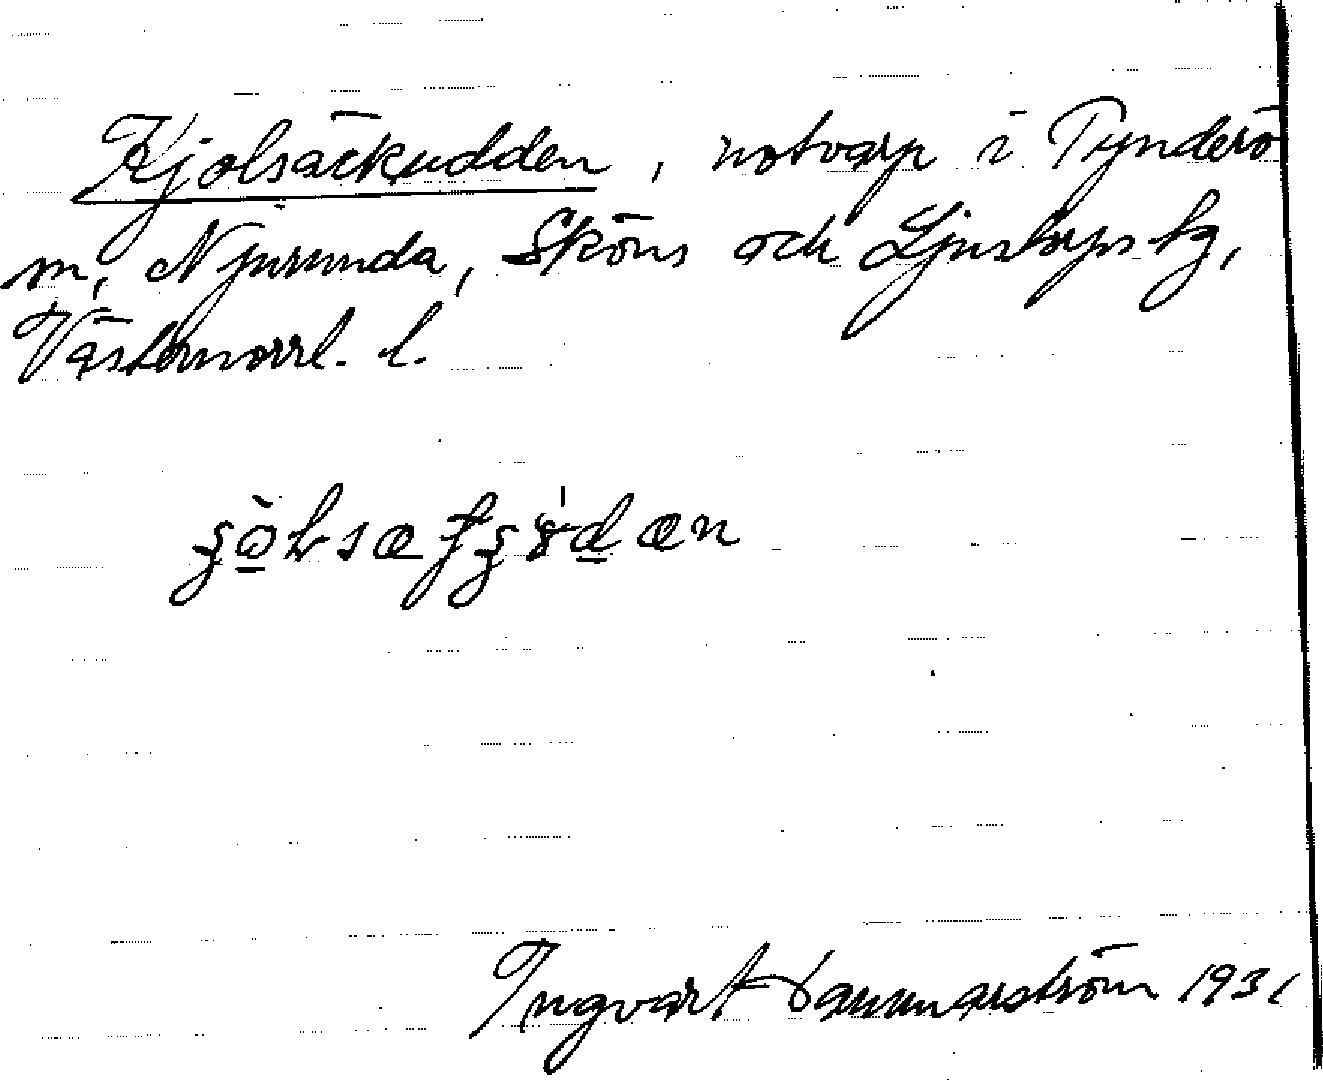 Kjolsäckudden, notvarp i Tynderö
m, Njurunda, Sköns och Ljustorps tg,
Västernorrl. l.
Ingvart Hammarström 1931